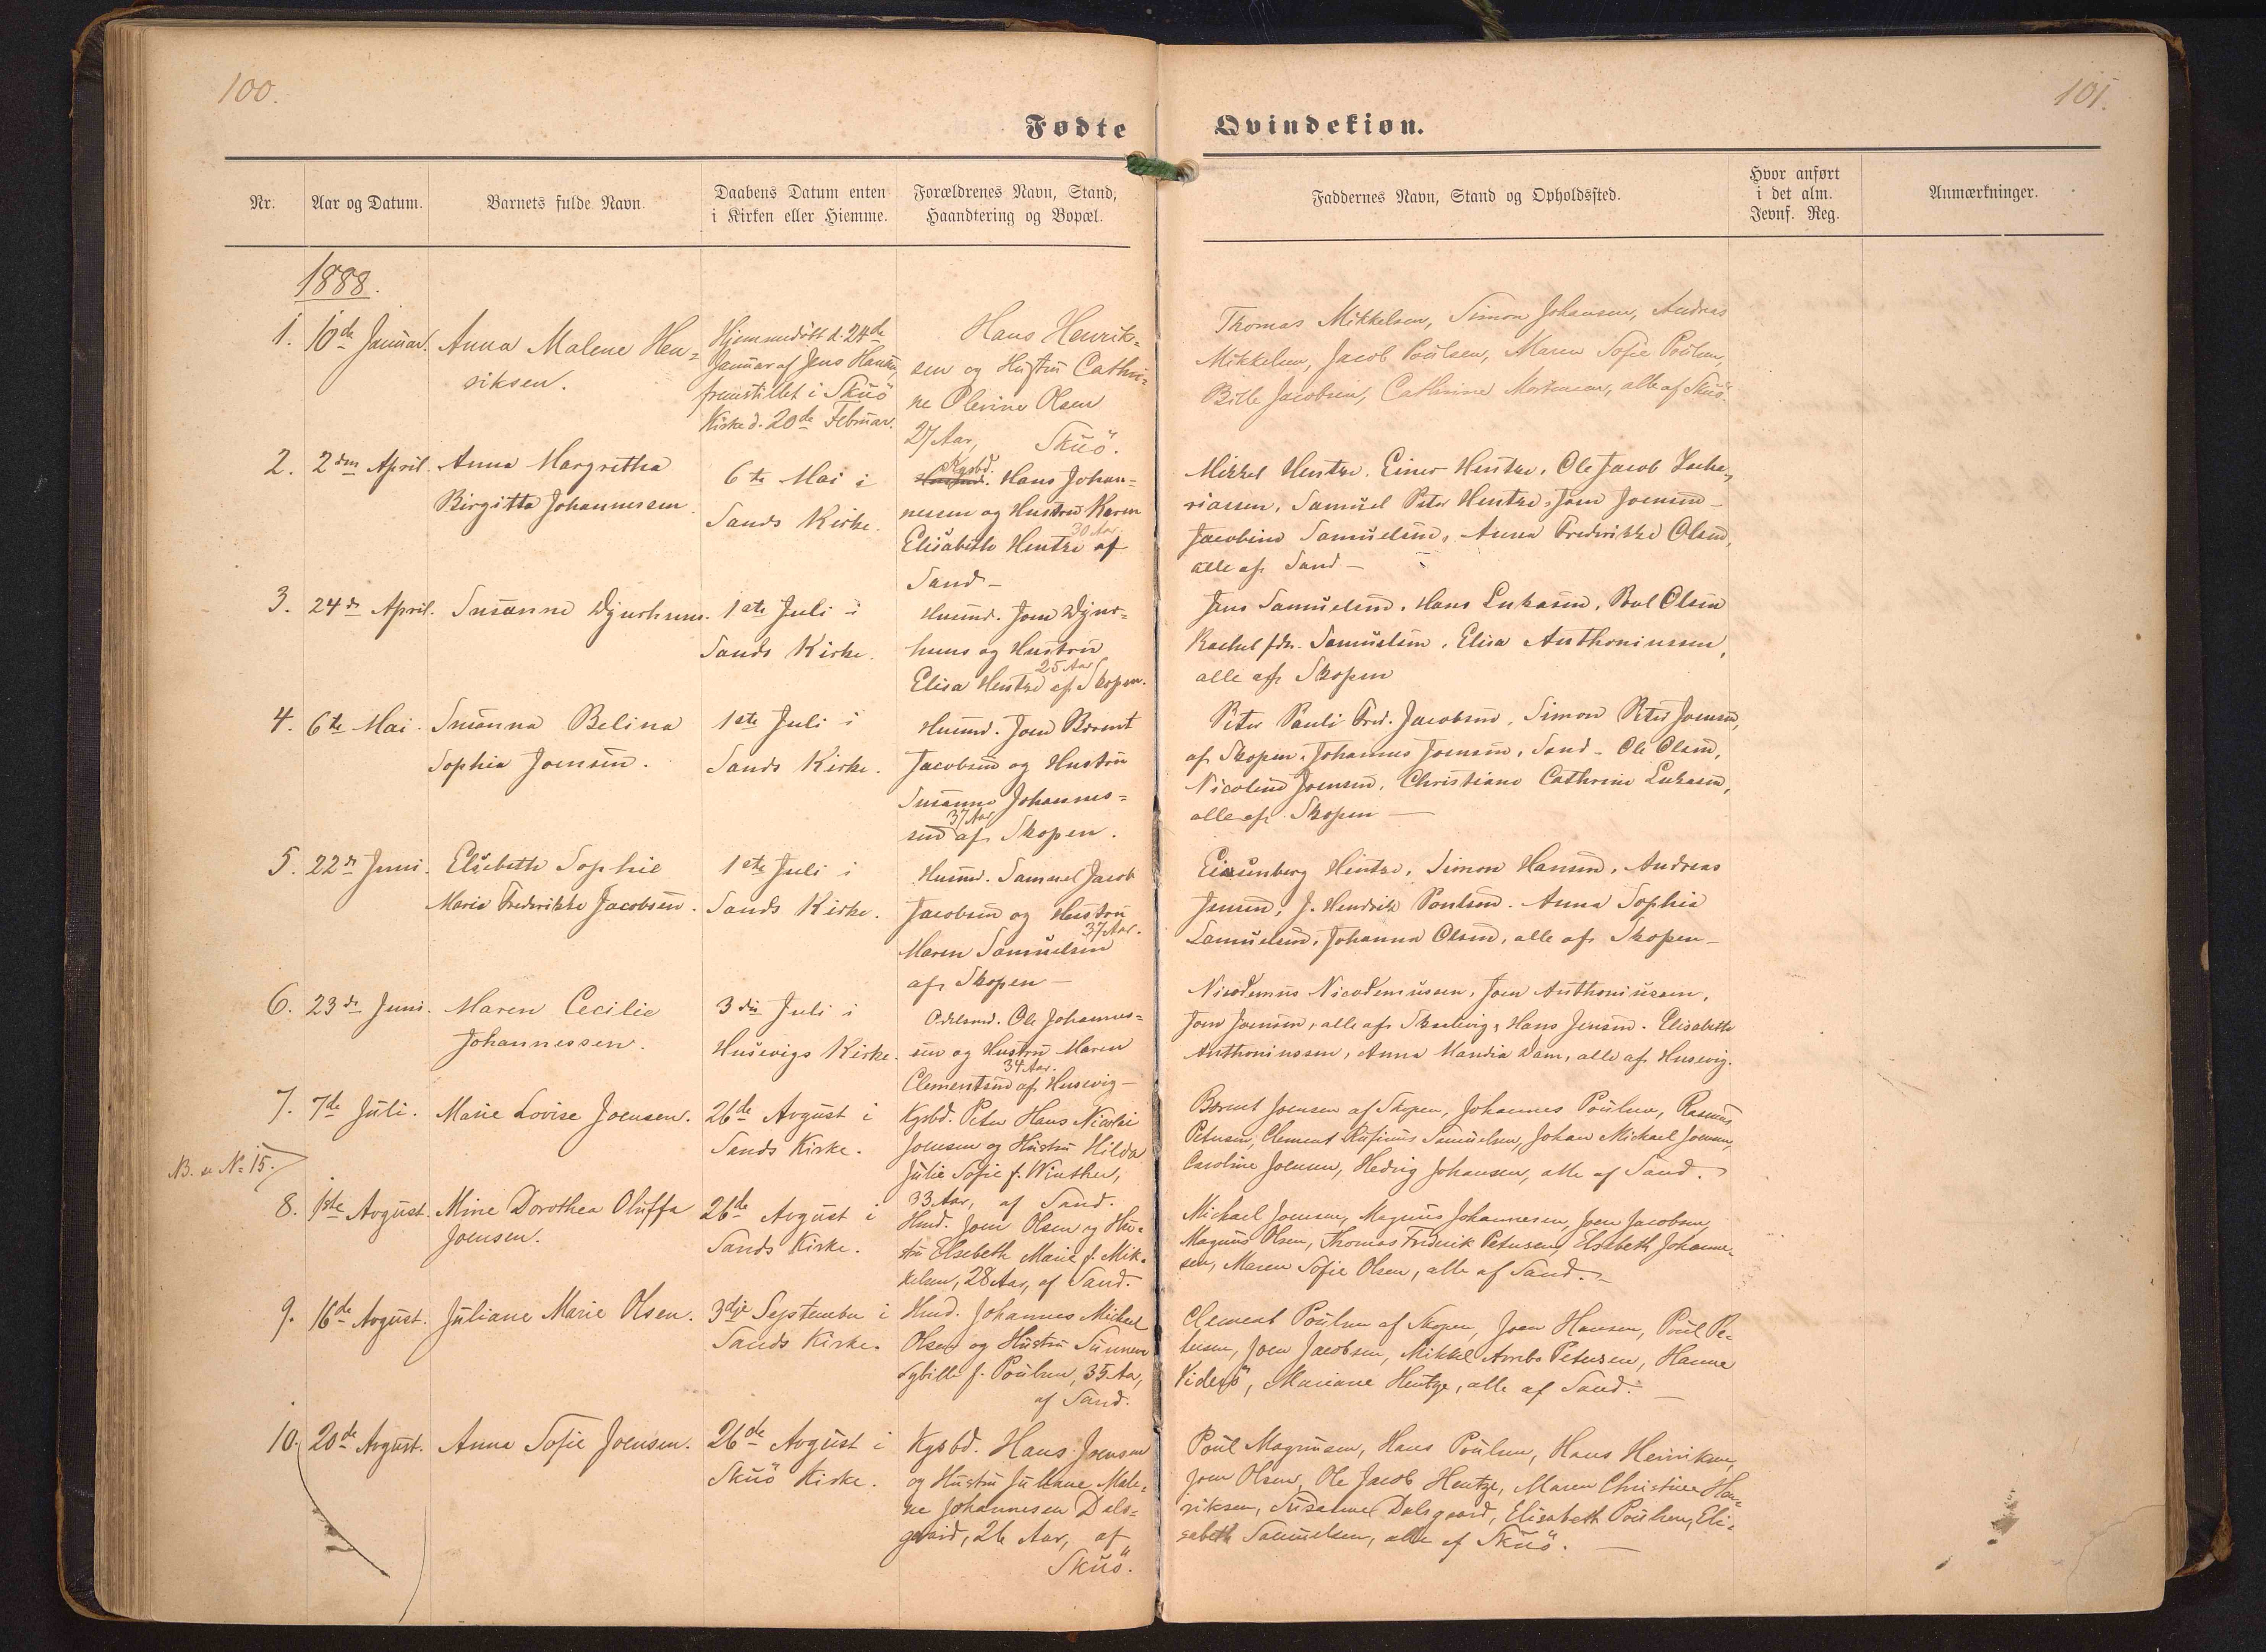 100.
101.
Fødte
Qvindekiøn.
Nr.
Aar og Datum.
Barnets fulde Navn
Daabens Datum enten
i Kirken eller Hiemme.
Forældrenes Navn, Stand,
Haandtering og Bopæl.
Faddernes Navn, Stand og Opholdssted.
Hvor anført
i det alm.
Jevnf. Reg.
Anmærkninger.
1888.
1.
10de Januar.
Anna Malene Hen-
riksen.
Hjemmedöbt d. 24de
Januar af Jens Hansen,
fremstillet i Skuö
Kirke d. 20de Februar.
Hans Henrik-
sen og Hustru Cathri-
ne Olevine Olsen
27 Aar, Skuö.
Thomas Mikkelsen, Simon Johansen, Andreas
Mikkelsen, Jacob Poulsen, Maren Sofie Poulsen,
Bille Jacobsen, Cathrine Mortensen, alle af Skuö.
2.
2den April.
Anna Margretha
Birgitta Johannessen.
6te Mai i
Sands Kirke.
Kgsbd.
Hans Johan-
nessen og Hustru Karen
30 Aar.
Elisabeth Hentze af
Sand -
Mikkel Hentze. Einer Hentze, Ole Jacob Zacha-
riassen, Samuel Peter Hentze, Joen Joensen -
Jacobine Samuelsen, Anna Frederikke Olsen,
alle af Sand -
3.
24de April.
Susanne Djurhuus.
1ste Juli i
Sands Kirke.
Husmd. Joen Djur-
huus og Hustru
25 Aar
Elisa Hentze af Skopen.
Jens Samuelsen, Hans Lukasen, Poul Olsen
Rachel Samuelsen, Elisa Anthoniussen,
alle af Skopen
4.
6te Mai.
Susanna Belina
Sophia Joensen.
1ste Juli i
Sands Kirke.
Husmd. Joen Berent
Jacobsen og Hustru
Susanne Johannes-
37 Aar
sen af Skopen.
Peter Pauli Fred. Jacobsen, Simon Peter Joensen,
af Skopen, Johannes Joensen, Sand - Ole Olsen,
Nicoline Joensen, Christiane Cathrine Lukasen,
alle af Skopen -
5.
22de Juni.
Elsebeth Sophie
Marie Frederikke Jacobsen.
1ste Juli i
Sands Kirke.
Husmd. Samuel Jacob
Jacobsen og Hustru
37 Aar.
Maren Samuelsen
af Skopen -
Eisenberg Hentze, Simon Hansen, Andreas
Jensen, J. Hendrik Poulsen. Anna Sophia
Samuelsen, Johanna Olsen, alle af Skopen -
6.
23de Juni.
Maren Cecilie
Johannessen.
3die Juli i
Husevigs Kirke.
Odelsmd. Ole Johannes-
sen og Hustru Maren
34 Aar.
Clementsen af Husevig -
Nicodemus Nicodemussen, Joen Anthoniussen,
Joen Joensen, alle af Skarvevig, Hans Jensen. Elisabeth
Anthoniussen, Anna Mandia Dam, alle af Husevig.
7.
7de Juli.
Marie Lovise Joensen.
26de August i
Sands Kirke.
Kgsbd. Peter Hans Nicolai
Joensen og Hustru Hilda
Julie Sofie f. Winther,
33 Aar, af Sand.
Berent Joensen af Skopen, Johannes Poulsen, Rasmus
Petersen, Clement Rufinus Samuelsen, Johan Michael Joensen,
Caroline Joensen, Hedvig Johansen, alle af Sand.
N.B. se No 15.
8.
1ste August.
Mine Dorothea Oluffa
Joensen.
26de August i
Sands Kirke.
Hmd. Joen Olsen og Hu-
stru Elsebeth Marie f. Mik-
kelsen, 28 Aar, af Sand.
Michael Joensen, Magnus Johannesen, Joen Jacobsen,
Magnus Olsen, Thomas Frederik Petersen, Elsebeth Johanne-
sen, Maren Sofie Olsen, alle af Sand. -
9.
16de August.
Juliane Marie Olsen.
3dje September i
Sands Kirke.
Hmd. Johannes Michael
Olsen og Hustru Sunneva
Sybille f. Poulsen, 35 Aar,
af Sand.
Clement Poulsen af Skopen, Joen Hansen, Poul Pe-
tersen, Joen Jacobsen, Mikkel Petersen, Hanne
Viderö, Mariane Hentze, alle af Sand. -
10.
20de August.
Anna Sofie Joensen.
26de August i
Skuö Kirke.
Kgsbd. Hans Joensen
og Hustru Juliane Male-
ne Johannesen Dals-
gaard, 26 Aar, af
Skuö.
Poul Magnusen, Hans Poulsen, Hans Henriksen,
Joen Olsen, Ole Jacob Hentze, Maren Christine Hen-
riksen, Susanne Dalsgaard, Elisabeth Poulsen, Eli-
sabeth Samuelsen, alle af Skuö. -